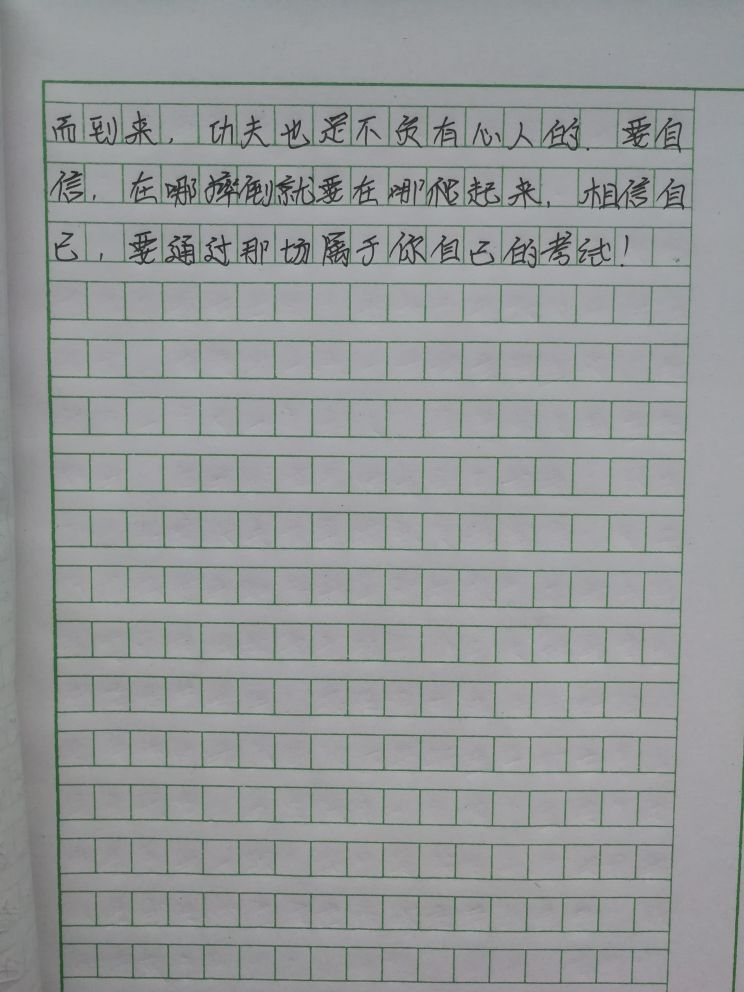 而到来，功夫也是不负有心人的．要自
信，在哪摔倒就要在哪爬起来，相信自
己，要通过那场属于你自己的考试！